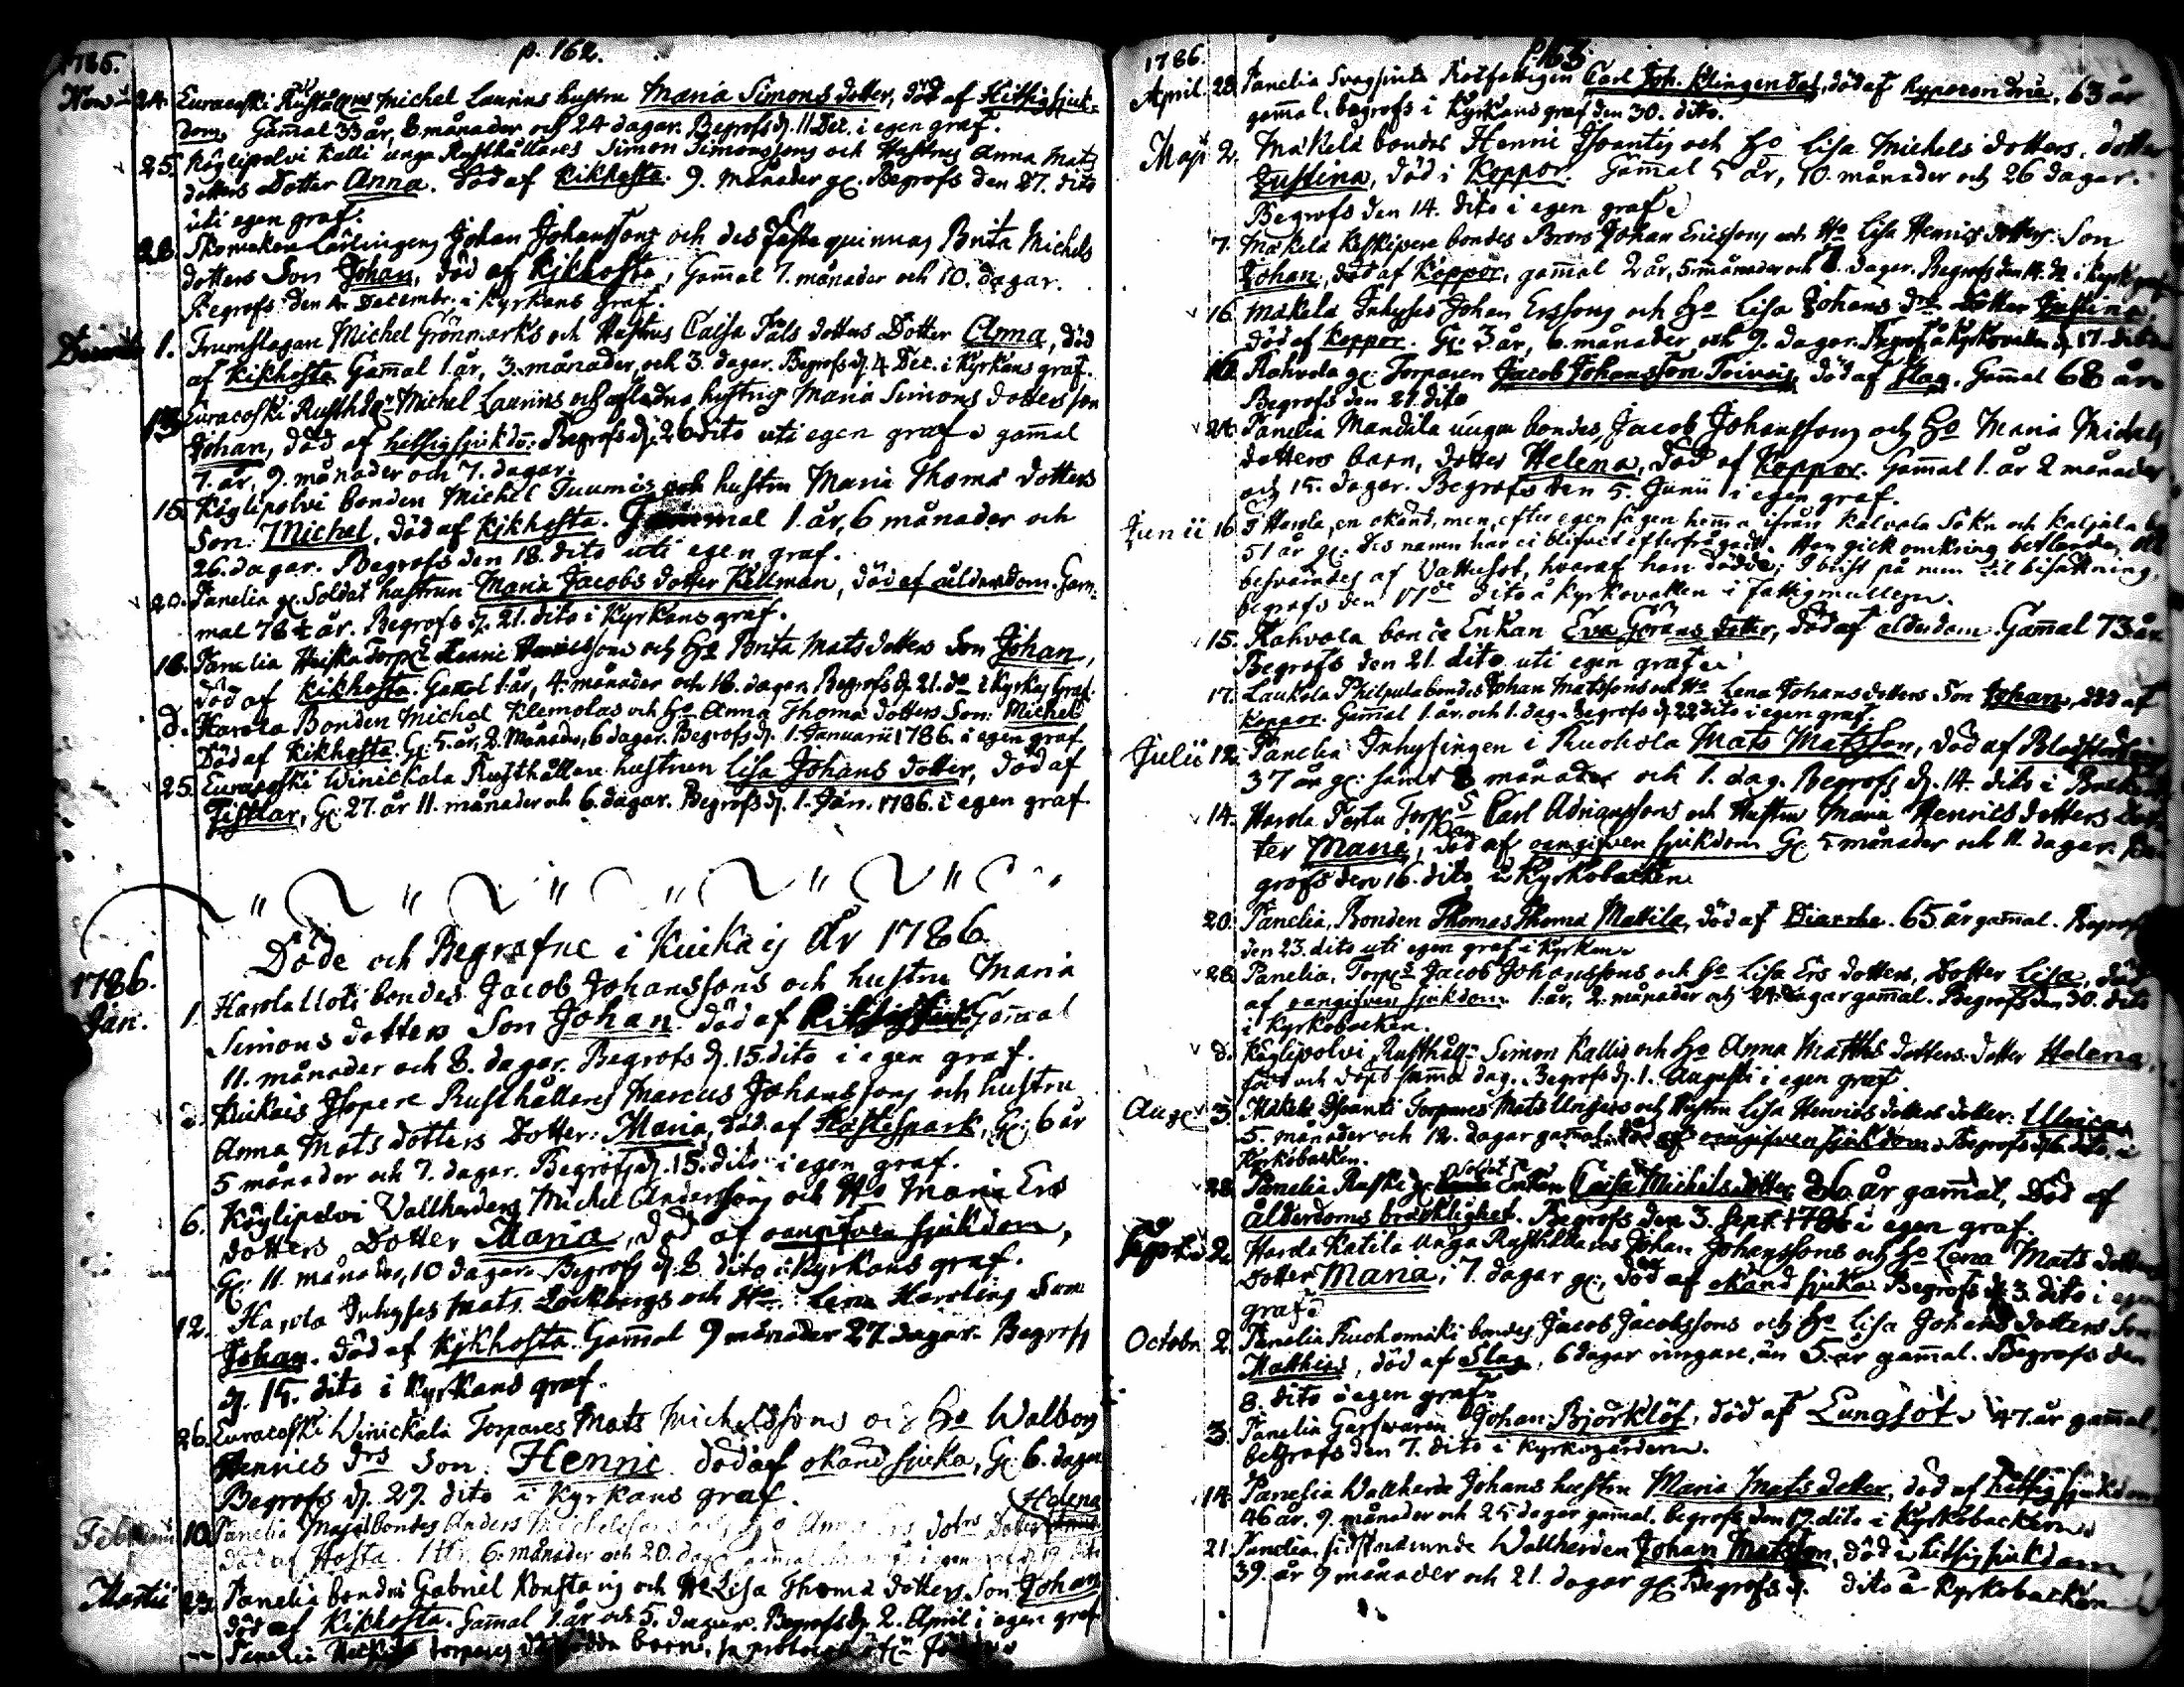 1785.
p. 162.
Nov. 24. Euracoski Rusthållaren Michel Laurins hustru Maria Simons dotter, död af Hitsig sjuk-
dom. Gammal 33 år, 8 månader och 24 dagar. Begrofs d. 11 Dec. i egen graf.
25. Köylipolvi Kalli unga Rusthållares Simon Simonssons och Hustrus Anna Mats
dotters Dotter Anna. Död af Kikhosta. 9. månader gl. Begrofs den 27. dito
uti egen graf.
28. Skomakare Lärlingens Johan Johanssons och des Fästeqvinnas Brita Michels
dotters Son Johan, död af Kikhosta, Gammal 7. månader och 10. dagar.
Begrofs den 4. Decembr. i Kyrkans graf.
Decemb. 1. Trumslagar Michel Grönmarks och Hustrus Caisa Påls dotters Dotter Anna, död
af Kikhosta Gammal 1. år, 3. månader, och 3. dagar. Begrofs d. 4 Dec. i Kyrkans graf.
13. Euracoski Rusthålln Michel Laurins och afledna hustrus Maria Simons dotters son
Johan, död af hitsig sjukdom. Begrofs d. 26 dito uti egen graf gammal
1. år, 9. månader och 7. dagar.
15. Köylipolvi bonden Michel Tuumis och hustru Maria Thomæ dotters
Son: Michel, död af Kikhosta. Gammal 1. år, 6 månader och
26. dagar. Begrofs den 18. dito uti egen graf.
20. Panelia gl. Soldat hustrun Maria Jacobs dotter Kellman, död af ålderdom. Gam-
mal 78 ½ år. Begrofs d. 21. dito i Kyrkans graf.
18. Panelia Heiska Torp. Henric Henricssons och Ho Brita Mats dotters Son Johan,
död af Kikhosta. Gammal 1. år, 4. månader och 16. dagar. Begrofs d. 21. do i Kyrkans Graf.
d. Harola Bonden Michel Klemolas och Ho Anna Thomæ dotters Son: Michel
Död af Kikhosta. Gl. 5. år, 2. Månader, 6 dagar. Begrofs d. 1. Januarii 1786. i egen graf.
25. Euracoski Winickala Rusthållare hustrun Lisa Johans dotter, död af
Fistlar, Gl. 27. år 11. månader och 6. dagar. Begrofs d. 1. Jan. 1786. i egen graf.
Döde och Begrafne i Kiukais År 1786.
1786.
Jan. 1. Harola Uoti bondes Jacob Johanssons och hustru Maria
Simons dotters Son Johan död af Gammal
11. månader och 8. dagar. Begrofs d. 15. dito i egen graf.
d. Kiukais Isopere Rusthållares Marcus Johanssons och hustru
Anna Mats dotters Dotter: Maria, död af Hästespark, Gl. 6 år
5 månader och 7. dagar. Begrofs d. 15. dito i egen graf.
6. Köylipolvi Vallherdens Michel Anderssons och Ho Maria Ers
dotters Dotter Maria, död af oangifven sjukdom,
Gl. 11. månader, 10 dagar. Begrofs d. 8. dito i Kyrkans graf.
12. Harola Inhyses Mats Löckbergs och Ho: Lena Harolins Son
Johan. död af Kikhosta. Gammal 9 månader 27. dagar. Begrofs
d. 15. dito i Kyrkans graf.
26. Euracoski Winickala Torpares Mats Michelssons och Ho Walborg
Henrics drs Son: Henric. död af okänd sjuka, Gl. 6. dagar
Begrofs d. 29. dito i Kyrkans graf.
Februarii 10. Panelia bondes Anders Michelssons och Ho Anna Ers dotrs Dotter Helena
död af Hosta. 1. år. 6. månader och 20. dagar gammal
Martii 23. Panelia bondes Gabriel Konstas och Ho Lisa Thomæ dotters Son Johan
död af Kikhosta. Gammal 1. år och 5. dagar. Begrofs d. 2. April i egen graf
Panelia torpares barn,
p. 163.
1786.
April. 28. Panelia Svagsinte Rotfattigen Carl Joh. Klingendal, död af Hypocondrie, 63 år
gammal. begrofs i Kyrkans graf den 30. dito.
Maji 2. Mäkelä bondes Henric Isoantis och Ho Lisa Michels dotters, dotter
Justina, död i Koppor. Gammal 5 år, 10. månader och 26 dagar.
Begrofs den 14. dito i egen graf.
7. Mäkelä Keskipere bondes Brors Johan Ericssons och Ho Lisa Henrics dotters Son
Johan, död af Koppor, gammal 2 år, 5 månader och 8. dagar. Begrofs den 14. do i Kyrk. graf
16. Mäkelä Inhyses Johan Erssons och Ho Lisa Johans drs Dotter Justina,
död af Koppor. Gl. 3. år, 6. månader, och 9. dagar. Begrofs å Kyrkovallen d. 17. dito
16. Rahvola gl. Torparen Jacob Johansson Toivois, död af Slag. Gammal 68 år.
Begrofs den 21. dito
24. Panelia Mandila unga bondes, Jacob Johanssons och Ho Maria Michels
dotters barn, dotter Helena, död af Koppor. Gammal 1. år 2 månader
och 15. dagar. Begrofs den 5. Junii i egen graf.
Junii 16. I Harola, en okänd, men efter egen sägen hemma ifrån Kalvola Sokn och Kaljala by
51 år gl. Des namn har ei blifvit efterfrågadt. Han gick omkring betlande, och
besvärades af Vattusot, hvaraf han dödde; I brist på rum til bisättning,
begrofs den 17de dito å Kyrkovallen i fattigmullen.
15. Rahvola bonde Enkan Eva Görans dotter, död af ålderdom. Gammal 73 år
Begrofs den 21. dito uti egen graf.
17. Laukola Philpula bondes Johan Matssons och Ho Lena Johans dotters Son Johan, död af
Koppor. Gammal 1. år. och 1. dag. Begrofs d. 22 dito i egen graf.
Julii 12. Panelia Inhysingen i Ruohola Mats Matsson, död af
37 år gl. samt 8 månader och 1. dag. Begrofs d. 14. dito i
14. Harola Pertu Torps Carl Adrianssons och Hustru Maria Henrics dotters Dot-
ter Maria, död af oangifven sjukdom Gl. 5 månader och 11. dagar. Be-
grofs den 16. dito å Kyrkobacken
20. Panelia, Bonden Thomas Thomæ Mattila, död af Diarrhe. 65 år gammal. Begrofs
den 23. dito uti egen graf i Kyrkan.
28. Panelia, Torps Jacob Johanssons och Ho Lisa Ers dotters, Dotter Lisa, död
af oangifven sjukdom. 1. år, 2. månader och 24. dagar gammal. Begrofs den 30. dito
i Kyrkobacken.
d. Köylipolvi Rusthålln Simon Kallis och Ho Anna Matths dotters. dotter Helena,
född och död samma dag. Begrofs d. 1. Augusti i egen graf.
Aug. 3. Mäkelä Isoanti Torpares Mats Ungers och Hustru Lisa Henrics dotters dotter: Ulrica
5. månader och 12. dagar gammal död af oangifven sjukdom. Begrofs d. 6. dito, i
Kyrkobacken.
28. Panelia Raski gl. Soldat Enkan Caisa Michels dotter 86 år gammal, död af
ålderdoms bräcklighet. Begrofs den 3. Sept. 1786 i egen graf.
Septemb. 2. Harola Katila unga Rusthållares Johan Johanssons och Ho Lena Mats dotters
dotter Maria, 7. dagar gl., död af okänd sjuka. Begrofs d. 3. dito i egen
graf.
Octobr. 2. Panelia Ruohomäki bondes Jacob Jacobssons och Ho Lisa Johans dotters Son
Matthias, död af Slag, 6 dagar ringare, än 5. år gammal. Begrofs den
8. dito i egen graf.
3. Panelia Garfwaren Johan Björklöf, död af Lungsot. 47. år gammal,
begrofs den 7. dito i Kyrkogården.
14. Panelia Wallherde Johans hustru Maria Mats dotter, död af hitsig sjukdom
46 år. 9. månader och 25 dagar gammal. begrofs den 17. dito i Kyrkobacken.
21. Panelia, sidstnämnde Wallherden Johan Matsson, död i hitsig sjukdom,
39. år 9 månader och 21. dagar gl. Begrofs d. dito å Kyrkobacken